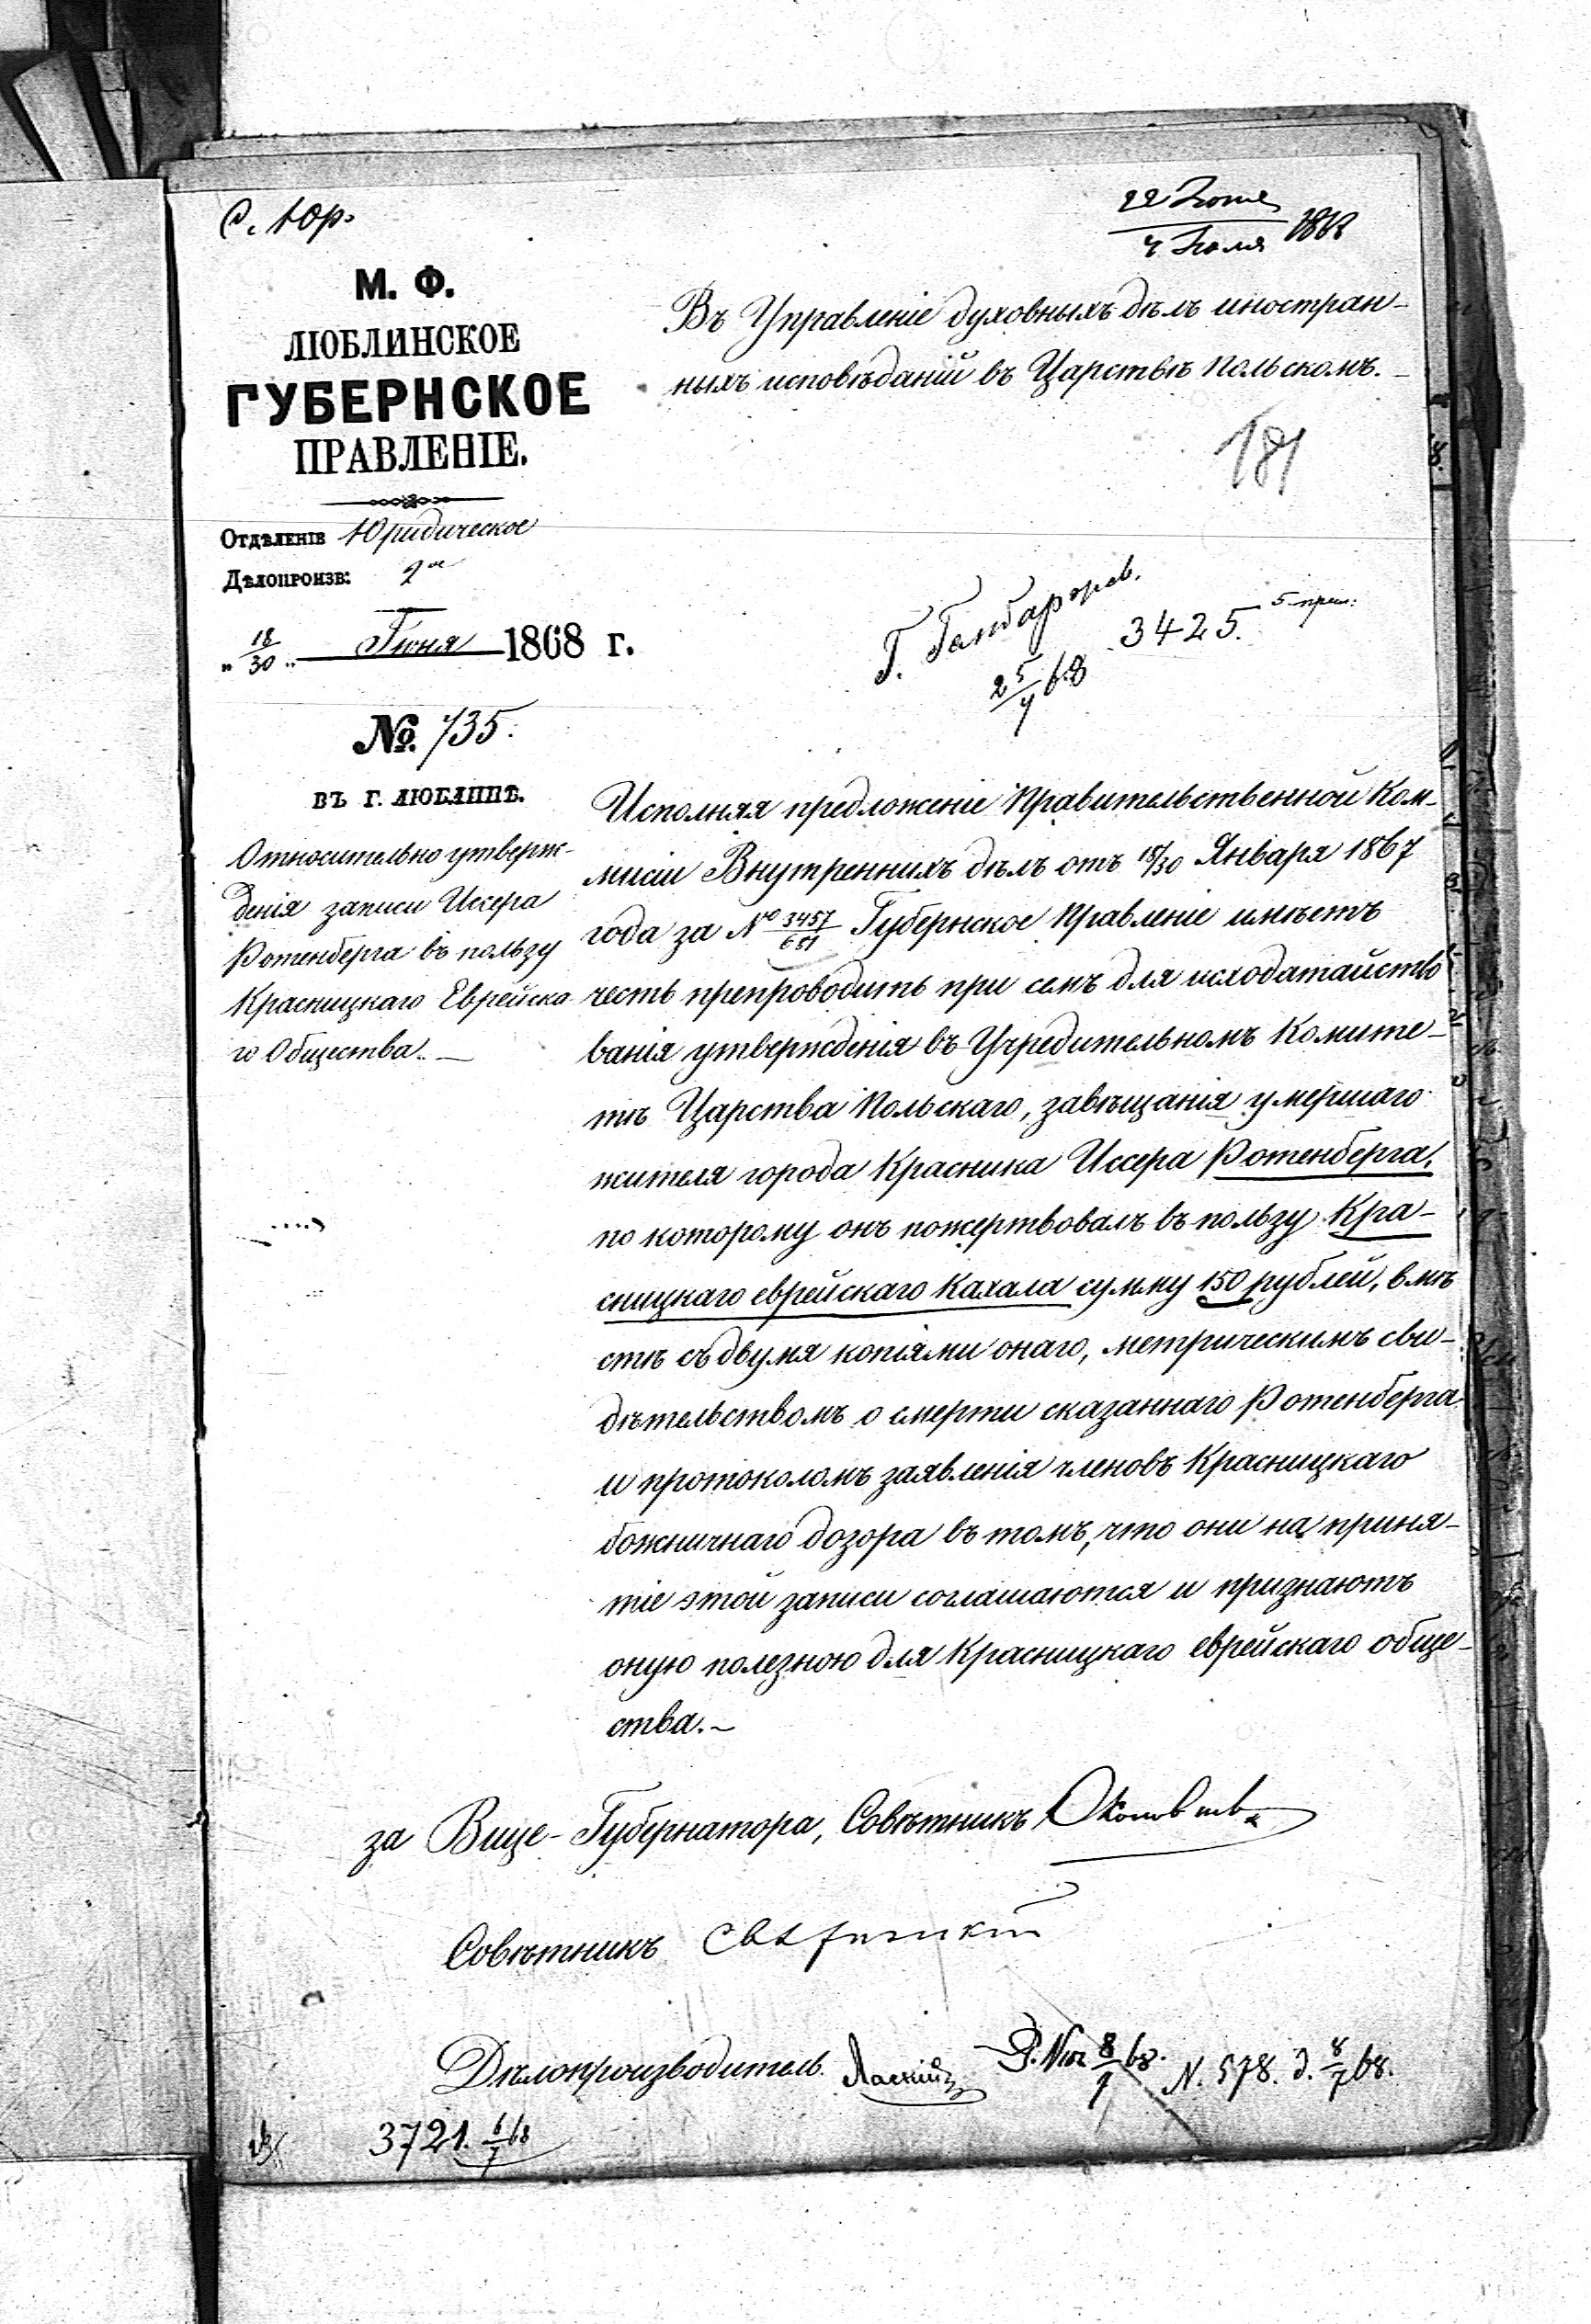 С. Юр.
22 Іюня
4 Іюля 1868
М. Ф.
ЛЮБЛИНСКОЕ
ГУБЕРНСКОЕ
ПРАВЛЕНІЕ.
Отдѣленіе Юридическое
Дѣлопроизв: 2ое
„ 18/30 „ Іюня 1868 г.
№ 735.
въ г. Люблинѣ.
Относительно утверж-
денія записи Иссера
Ротенберга въ пользу
Красницкаго Еврейска
го Общества. —
Въ Управленіе духовныхъ дѣлъ иностран-
ныхъ исповѣданій въ Царствѣ Польскомъ. —
181
Г.
25/7 68
3425. 5 прил:
Исполняя предложеніе Правительственной Ком-
мисіи Внутреннихъ дѣлъ отъ 18/30 Января 1867
года за № 3457/681 Губернское Правленіе имѣетъ
честь препроводить при семъ для исходатайство
ванія утвержденія въ Учредительномъ Комите-
тѣ Царства Польскаго, завѣщанія умершаго
жителя города Красника Иссера Ротенберга,
по которому онъ пожертвовалъ въ пользу Кра-
сницкаго еврейскаго Кахала сумму 150 рублей, вмѣ
стѣ съ двумя копіями онаго, метрическимъ сви-
дѣтельствомъ о смерти сказаннаго Ротенберга
и протоколомъ заявленія членовъ Красницкаго
божничнаго дозора въ томъ, что они на приня-
тіе этой записи соглашаются и признаютъ
оную полезною для Красницкаго еврейскаго обще-
ства. —
за Вице-Губернатора, Совѣтникъ
Совѣтникъ
Дѣлопроизводитель Ласкій
N. 578. д. 8/7 68.
3721. 6/7 68